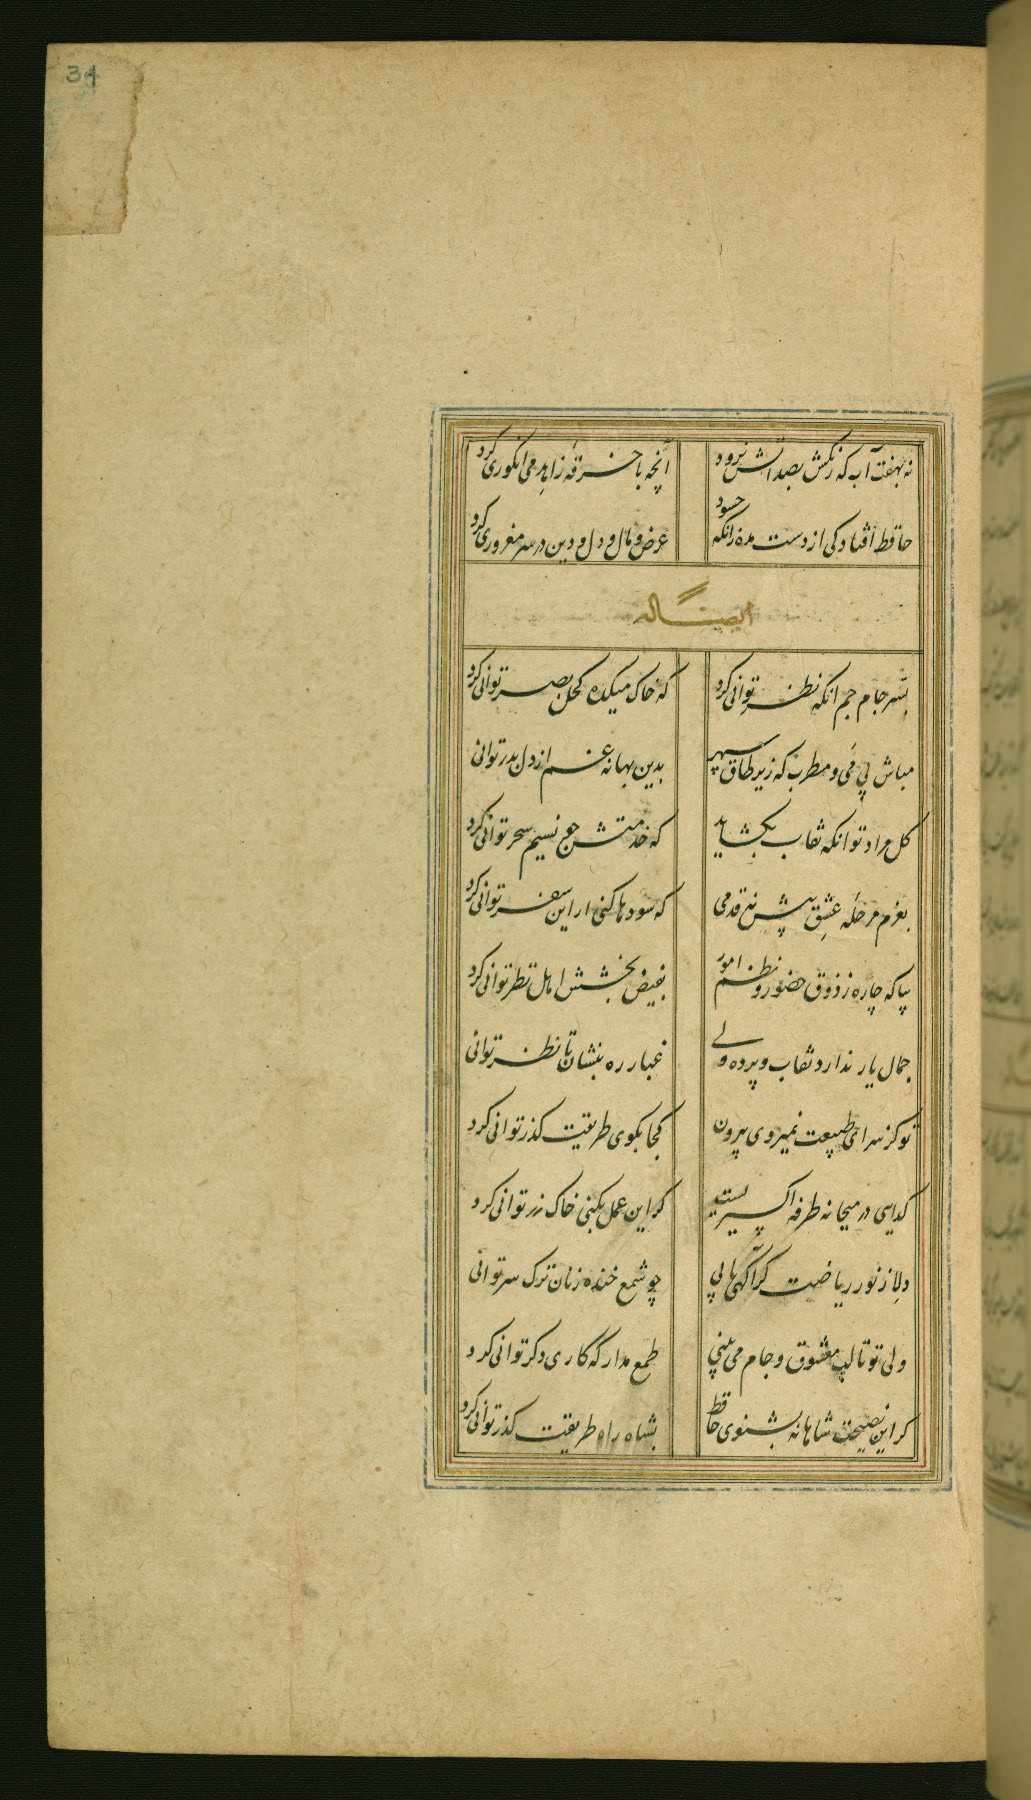 34
نه بهفت آب که رنکش بصد آتش نرود
آنچه با خرقهٔ زاهد می انکوری کرد
حافظ افتادکی از دست مده زانکه حسود
عرض و مال و دل و دین در سر مغروری کرد
ایضاً له
بسر جام جم انکه نظر توانی کرد
که خاک میکده کحل بصر توانی کرد
مباش بی می و مطرب که زیر طاق سپهر
بدین بهانه غم از دل بدر توانی
کل مراد تو انکه نقاب بکشاید
که خدمتش چو نسیم سحر توانی کرد
بعزم مرحلهٔ عشق پیش نه قدمی
که سودها کنی ار این سفر توانی کرد
بیا که چاره ز ذوق حضور و نظم امور
بفیض بخشش اهل نظر توانی کرد
جمال یار ندارد نقاب و پرده ولی
غبار ره بنشان تا نظر توانی
تو کز سرای طبیعت نمیروی بیرون
کجا بکوی طریقت کذر توانی کرد
کدایی در میخانه طرفه اکسیریست
کر این عمل بکنی خاک زر توانی کرد
دلا ز نور ریاضت کر آکهی یابی
چو شمع خنده زنان ترک سر توانی
ولی تو تا لب معشوق و جام می بینی
طمع مدار که کاری دکر توانی کرد
کر این نصیحت شاهانه بشنوی حافظ
بشاه راه طریقت کذر توانی کرد